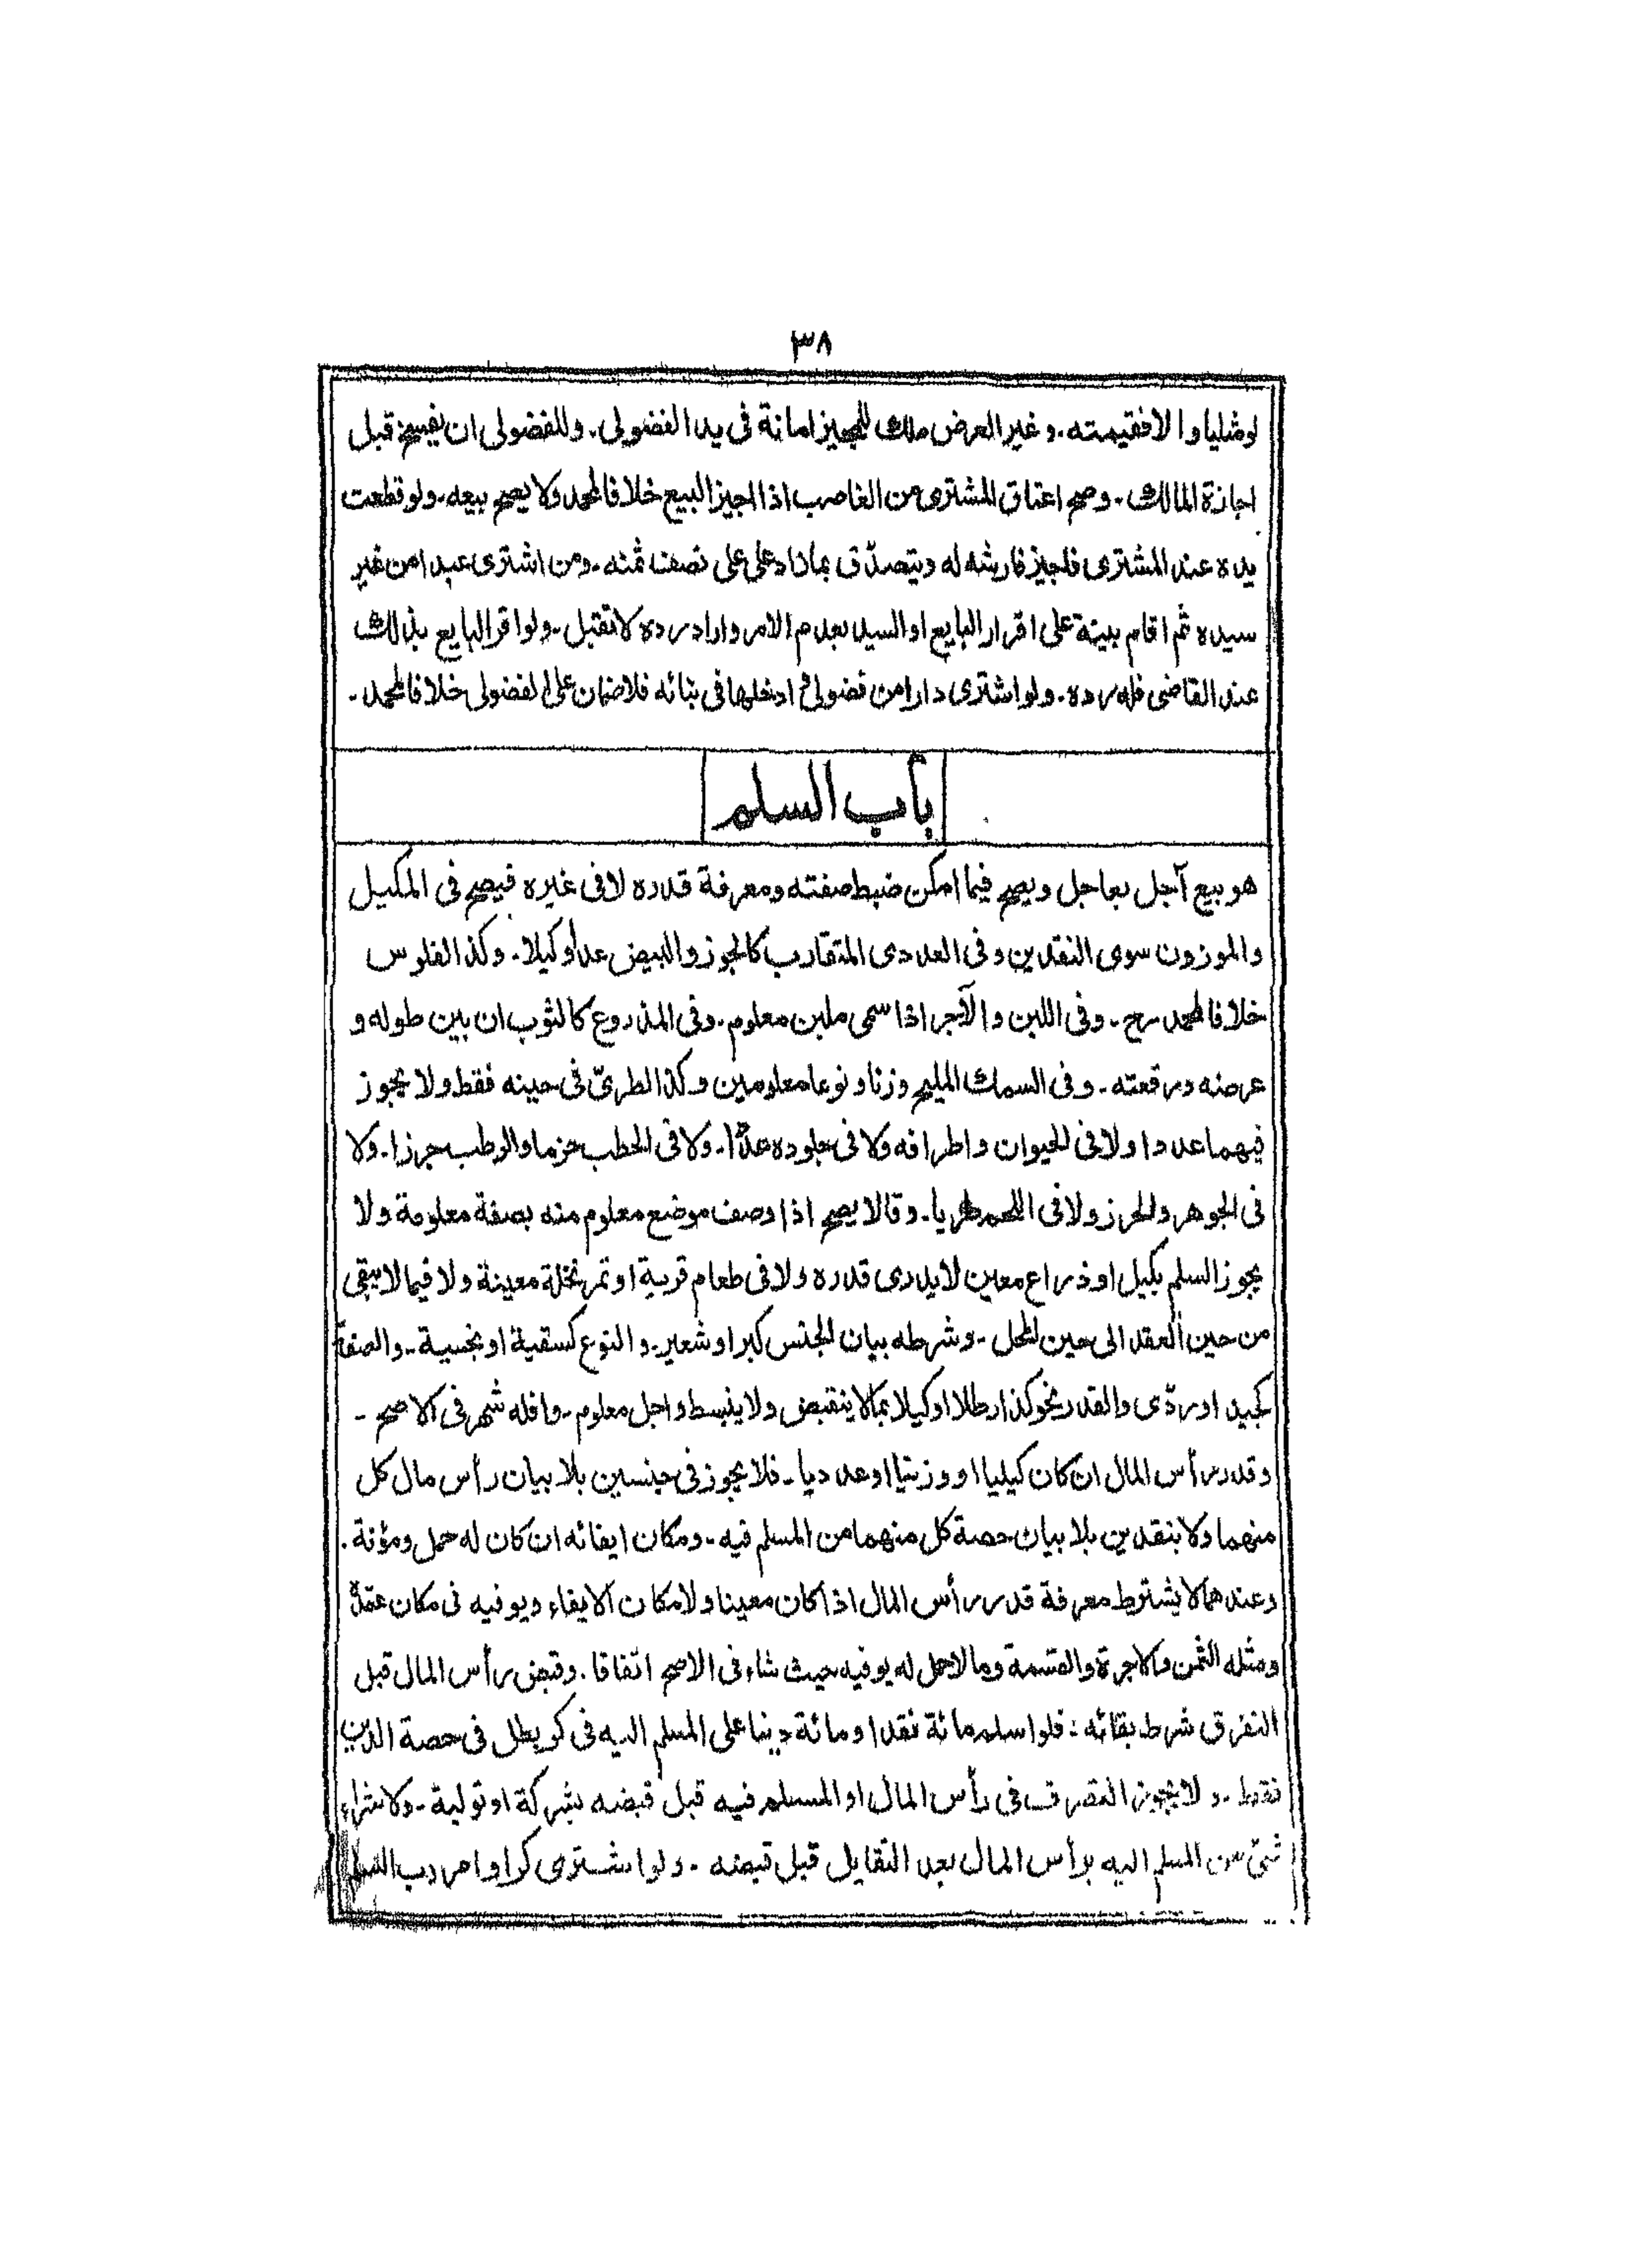 ٣٨
لو مثليا والا فقيمته. وغير العرض ملك للمجيز امانة فى يد الفضولى. وللفضولى ان يفسخ قبل
اجازة المالك. وصح اعتاق المشترى من الغاصب اذا اجيز البيع خلافا لمحمد ولا يصح بيعه. ولو قطعت
يده عند المشترى فاجيز فارشه له ويتصدّق بما زاد على على نصف ثمنه. ومن اشترى عبدا من غير
سيده ثم اقام بينة على اقرار البايع او السيد بعدم الامر واراد رده لا تقبل. ولو اقر البايع بذلك
عند القاضى فله رده. ولو اشترى دارا من فضولى و ادخلها فى بنائه فلا ضمان على الفضولى خلافا لمحمد.
باب السلم
هو بيع آجل بعاجل ويصح فيما امكن ضبط صفته ومعرفة قدره لا فى غيره فيصح فى المكيل
والموزون سوى النقدين وفى العددى المتقارب كالجوز والبيض عدا وكيلا. وكذ الفلوس
خلافا لمحمد رح. وفى اللبن والآجر اذا سمى ملبن معلوم. وفى المذروع كالثوب ان بين طوله و
عرضه ورقعته. وفى السمك المليح وزنا ونوعا معلومين وكذا الطرىّ فى حينه فقط ولا يجوز
فيهما عددا ولا فى الحيوان واطرافه ولا فى جلوده عدّا. ولا فى الحطب حزما والرطب جرزا. ولا
فى الجوهر والخرز ولا فى اللحم طريا. وقالا يصح اذا وصف موضع معلوم منه بصفة معلومة ولا
يجوز السلم بكيل او ذراع معين لا يدرى قدره ولا فى طعام قرية او تمر نخلة معينة ولا فيما لا يبقى
من حين العقد الى حين المحل. وشرطه بيان الجنس كبر او شعير. والنوع كسقية او بخسية. والصفة
كجيد او ردّى والقدر نحو كذا رطلا او كيلا بما لا ينقبض ولا ينبسط واجل معلوم. واقله شهر فى الاصح.
وقدر رأس المال ان كان كيليا او وزنيا او عدديا. فلا يجوز فى جنسين بلا بيان رأس مال كل
منهما ولا بنقدين بلا بيان حصة كل منهما من المسلم فيه. ومكان ايفائه ان كان له حمل ومؤنة.
وعندهما لا يشترط معرفة قدر رأس المال اذا كان معينا ولا مكان الايفاء ويوفيه فى مكان عقده
ومثله الثمن والاجرة والقسمة وما لا حمل له يوفيه حيث شاء فى الاصح اتفاقا. وقبض رأس المال قبل
التفرق شرط بقائه: فلو اسلم مائة نقدا ومائة دينا على المسلم اليه فى كر بطل فى حصة الدين
فقط. ولا يجوز التصرف فى رأس المال او المسلم فيه قبل قبضه بشركة او تولية. ولا شراء
شئ من المسلم اليه برأس المال بعد التقايل قبل قبضه. ولو اشترى كرا وامر رب السلم